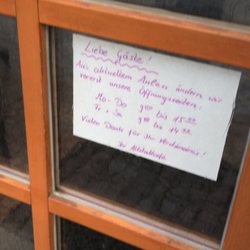 Liebe Gäste!
Aus aktuellem Anlass ändern wir
vorerst unsere Öffnungszeiten:
Mo - Do 9⁰⁰ bis 15⁰⁰
Fr + Sa 9⁰⁰ bis 14³⁰
Vielen Dank für Ihr Verständnis!
Ihr